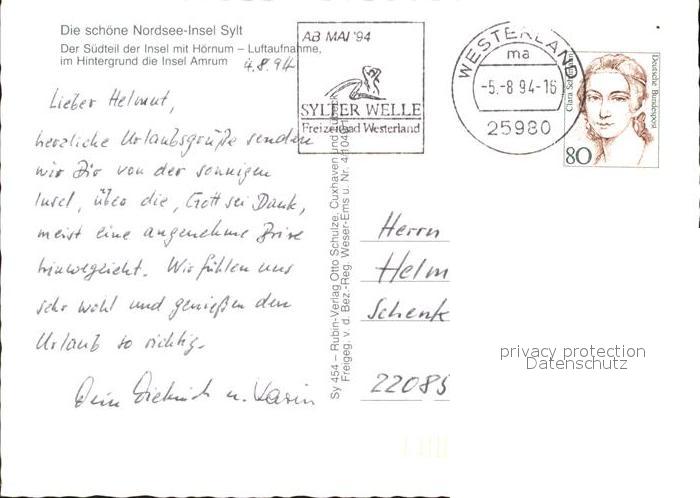 Die schöne Nordsee-Insel Sylt
Der Südteil der Insel mit Hörnum – Luftaufnahme,
im Hintergrund die Insel Amrum
4.8.94
Lieber Helmut,
herzliche Urlaubsgrüße senden
wir Dir von der sonnigen
Insel, über die, Gott sei Dank,
meist eine angenehme Brise
hinwegzieht. Wir fühlen uns
sehr wohl und genießen den
Urlaub so richtig.
Dein Dietrich u. Karin
Sy 454 – Rubin-Verlag Otto Schulze, Cuxhaven und
Freigeg. v. d. Bez.-Reg. Weser-Ems u. Nr.
AB MAI '94
SYLTER WELLE
Freizeitbad Westerland
WESTERLAND
ma
-5.-8 94-16
25980
Clara Schumann
Deutsche Bundespost
80
Herrn
Helm
Schenk
22085
privacy protection
Datenschutz